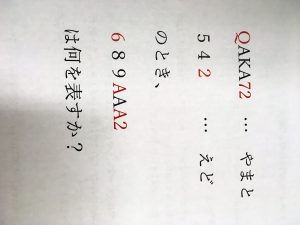 QAKA72 … やまと
542 … えど
のとき、
689AAA2
は何を表すか？